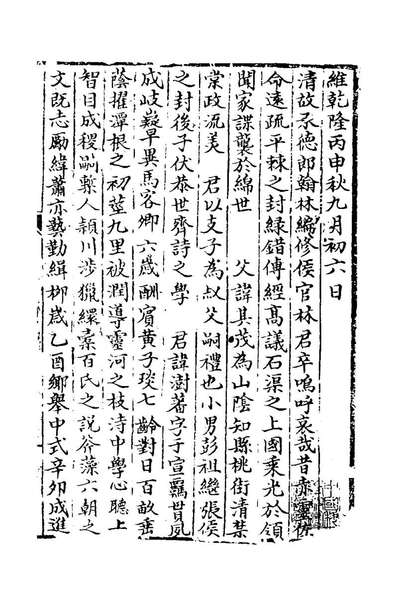 維乾隆丙申秋九月初六日
清故承德郎翰林編修侯官林君卒嗚呼哀哉昔赤靈佐
命遠疏平棘之封綠錯傳經高議石渠之上國秉光於領
聞家諜襲於綿世　父諱其茂為山陰知縣桃街清禁
棠政流美　君以支子為叔父嗣禮也小男彭祖繼張侯
之封後子伏恭世齊詩之學　君諱澍蕃字于宣羈貫夙
成岐嶷早異馬客卿六歲酬賓黃子琰七齡對日百畝垂
蔭擢潭根之初莖九里被潤導靈河之枝渚中學心聽上
智目成稷嗣縣人潁川涉獵繯橐百氏之說斧藻六朝之
文既志勵緯蕭亦藝勤緝柳歲乙酉鄉舉中式辛卯成進